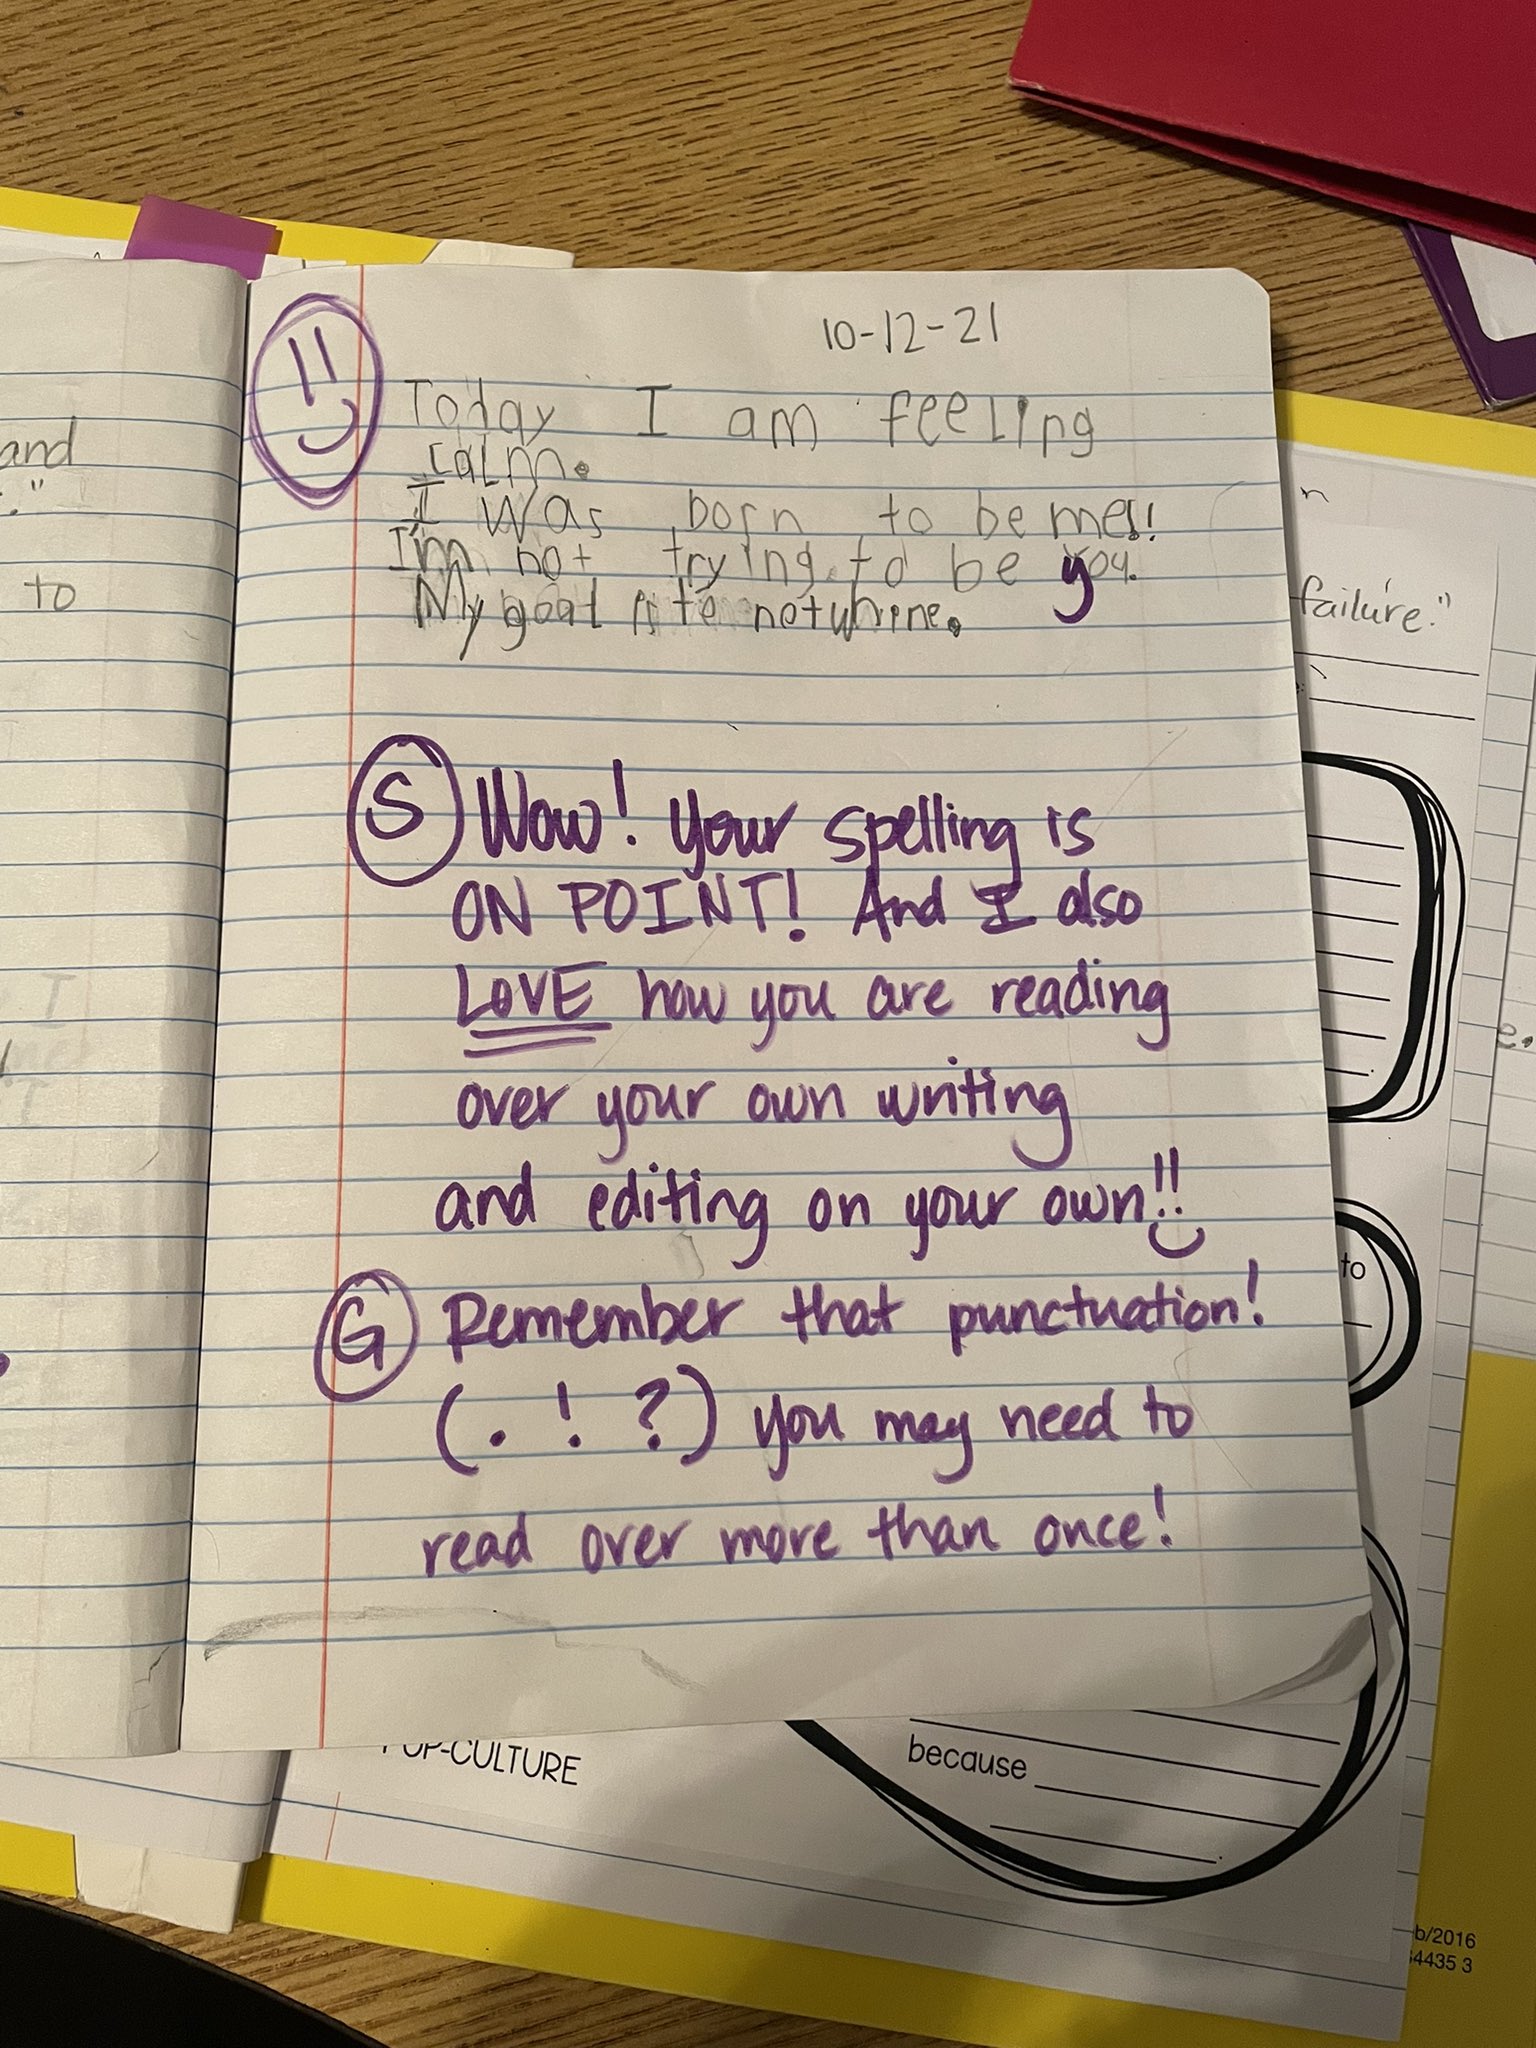 10-12-21
Today I am feeling
calm.
I was born to be me!!
I'm not trying to be you.
My goal is to not whine.
S Wow! Your spelling is
ON POINT! And I also
LOVE how you are reading
over your own writing
and editing on your own!!
G Remember that punctuation!
(. ! ?) you may need to
read over more than once!
and
."
to
I
n
failure."
e.
to
POP-CULTURE
because
b/2016
4435 3